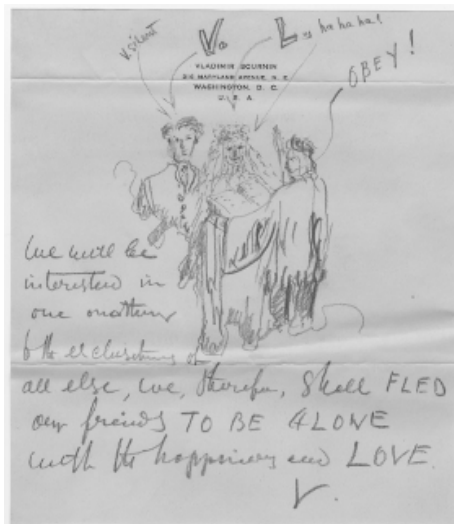 V. silent
V. L. es ha ha ha!
OBEY!
VLADIMIR BOURNIN
316 MARYLAND AVENUE, N. E.
WASHINGTON, D. C.
U. S. A.
We will be
interested in
one another
to the exclusivity of
all else, we, therefor, shall FLED
our friends TO BE ALONE
with the happiness and LOVE.
V.